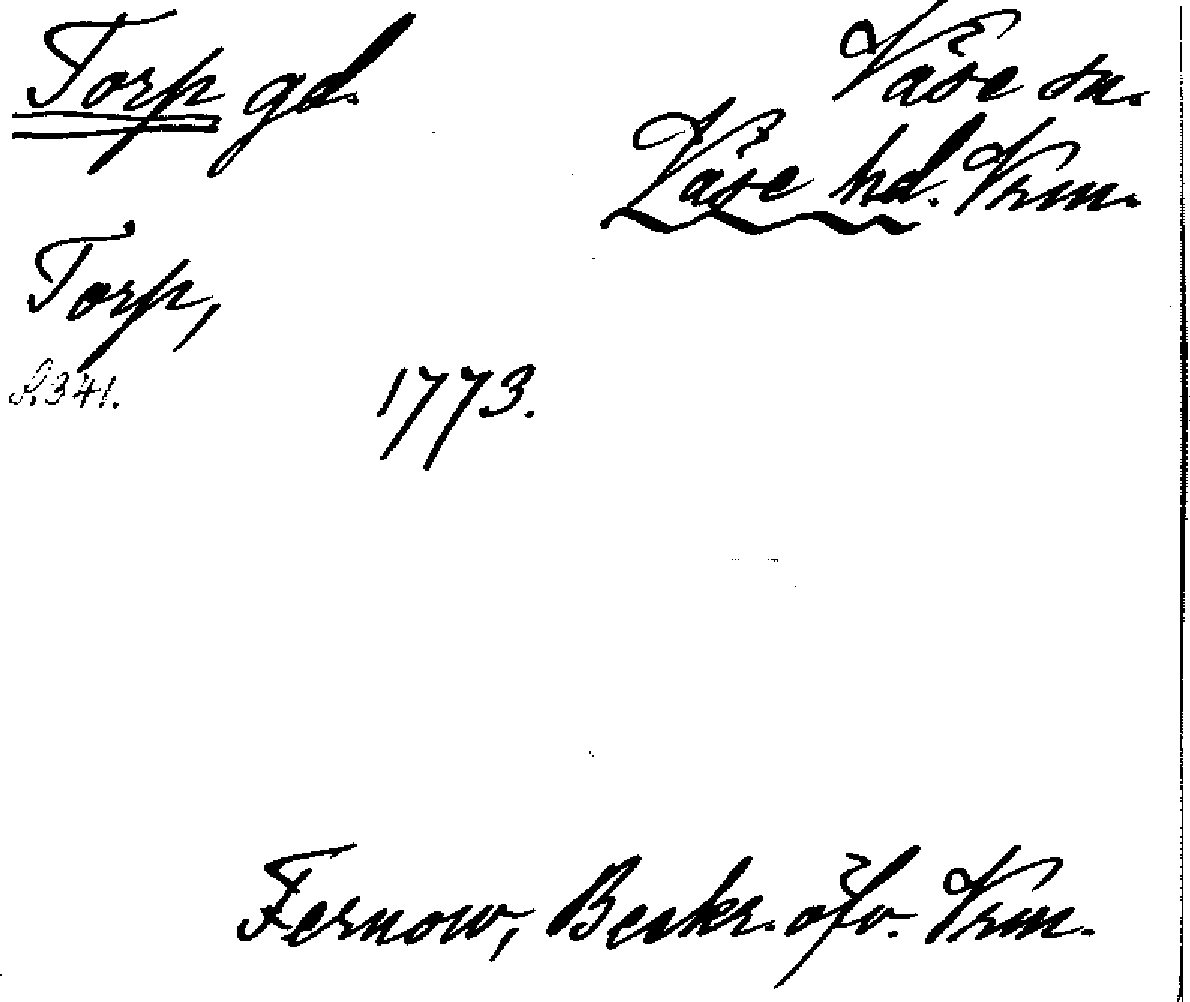 Torp gd.
Väse sn.
Väse hd. Vrm.
Torp,
S. 341.
1773.
Fernow, Beskr. öfv. Vrm.